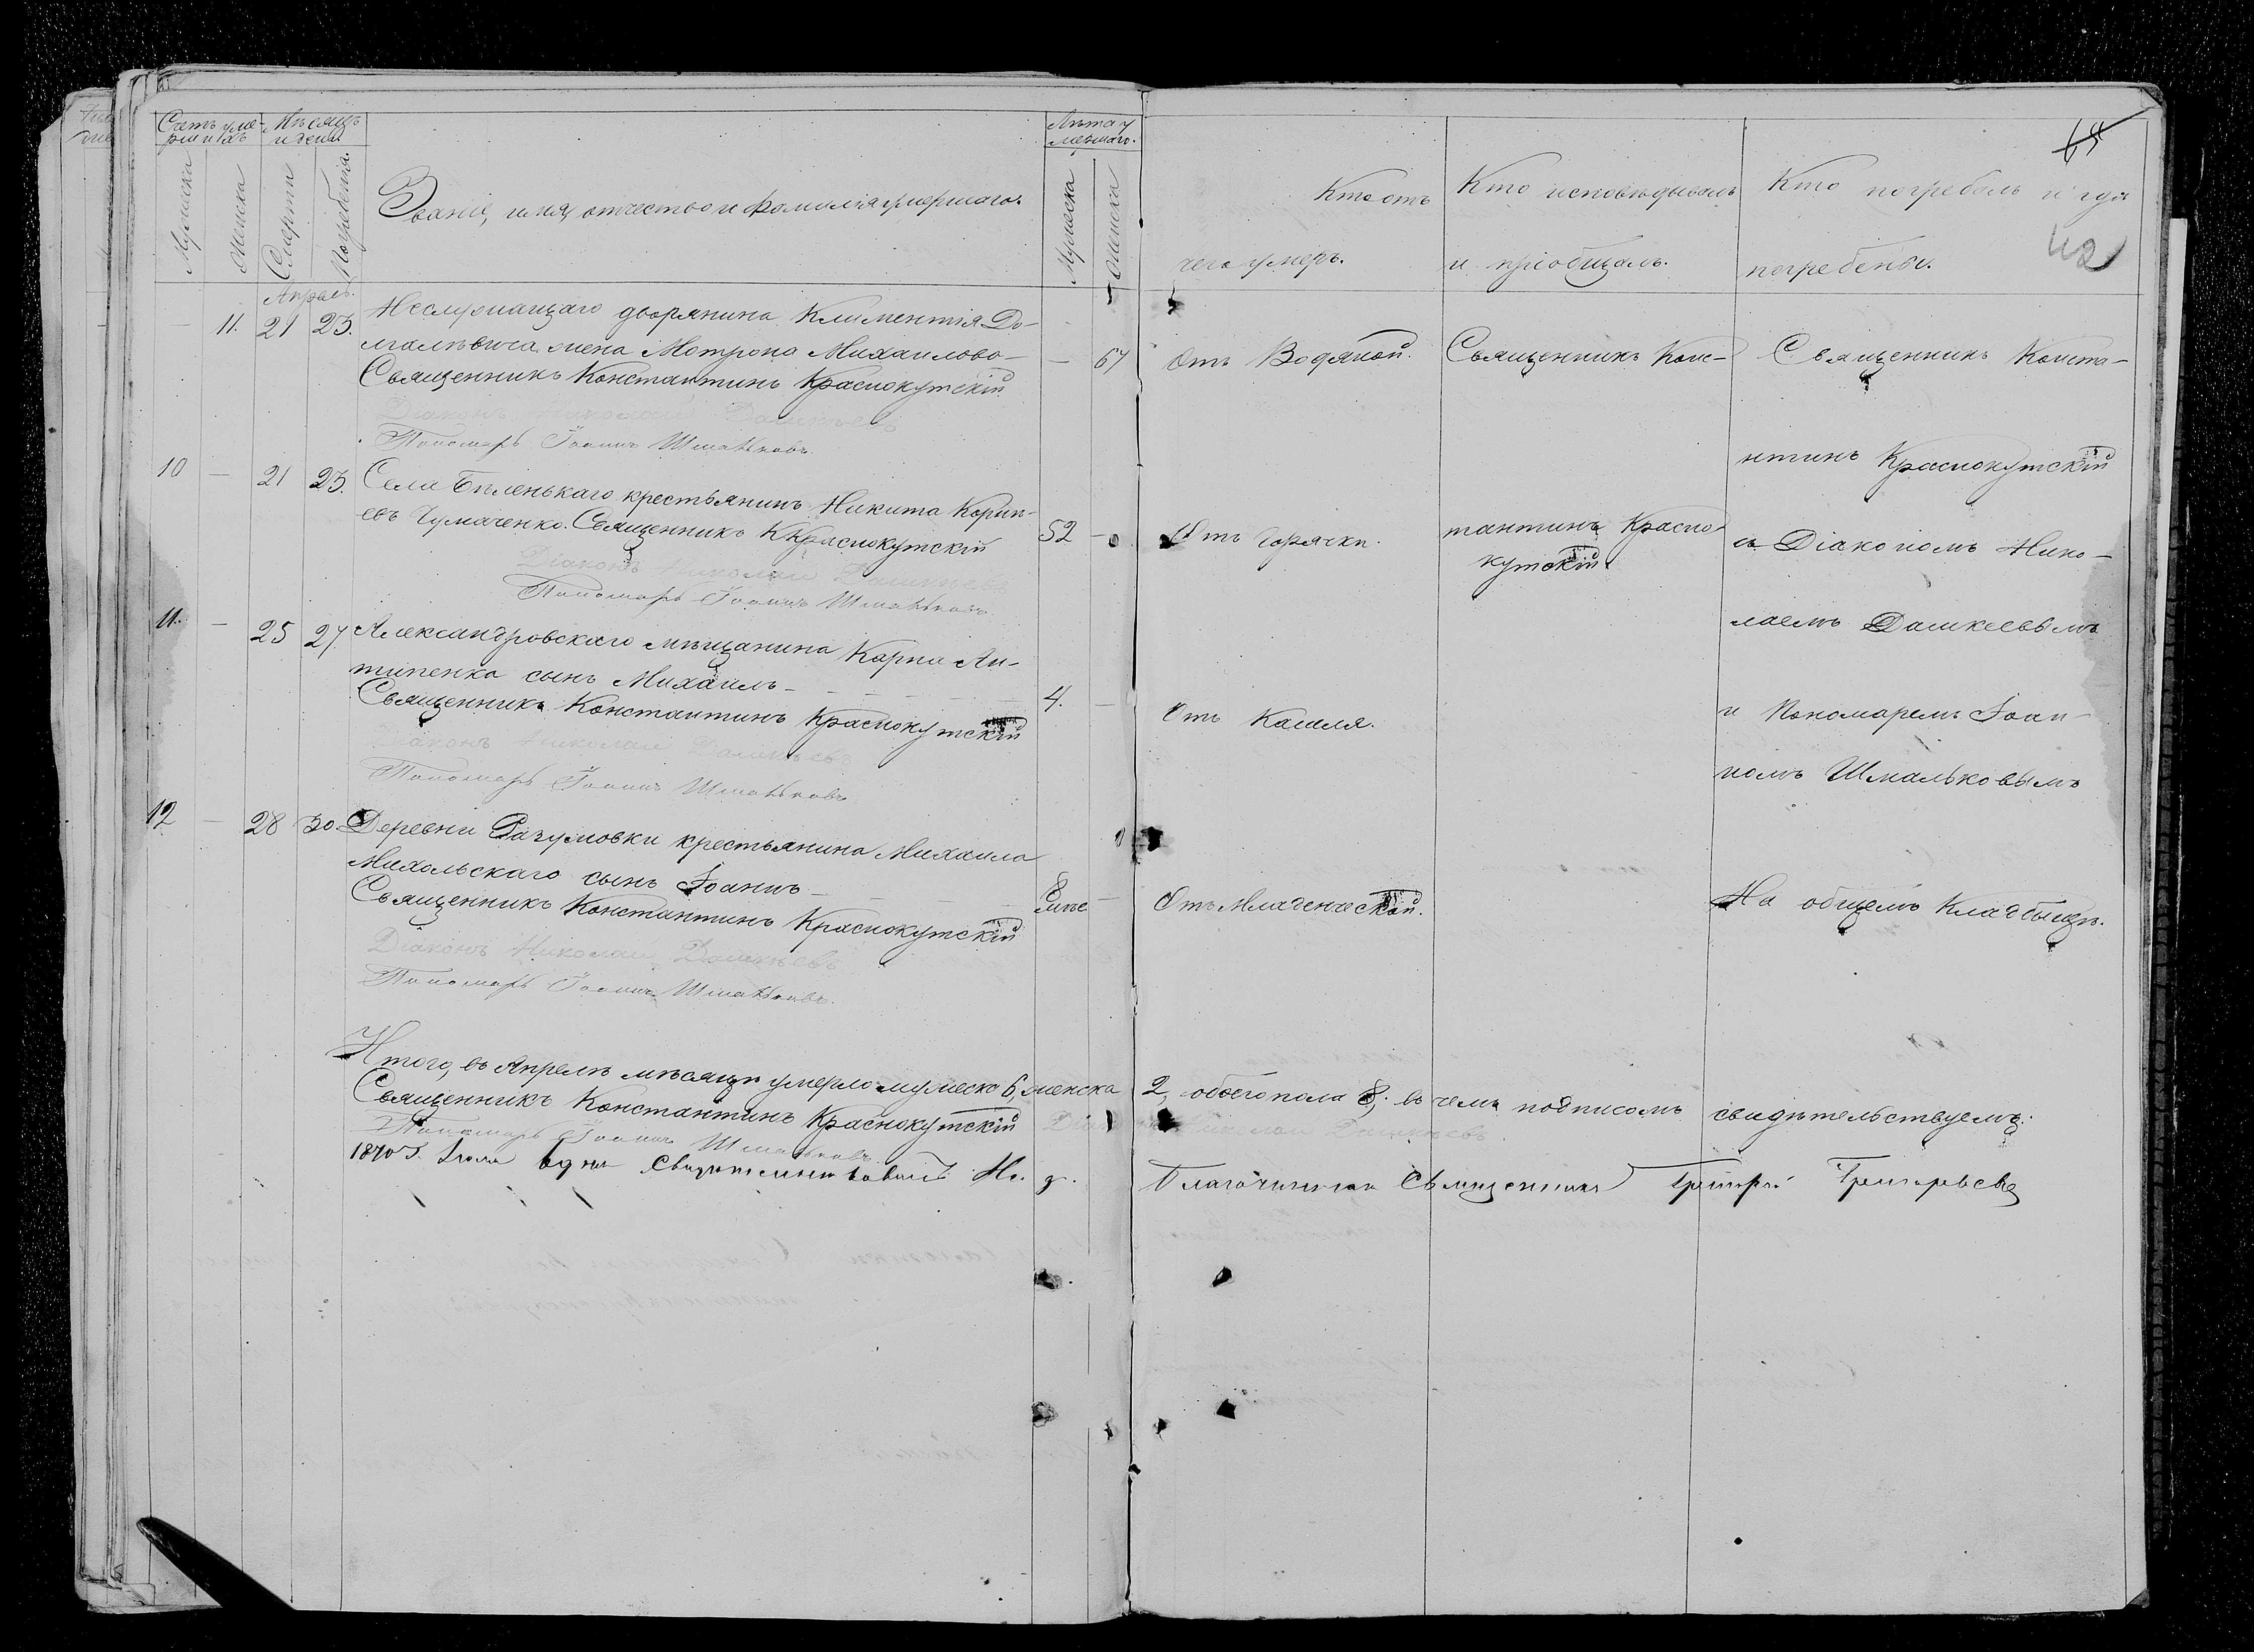 Счетъ уме-
ршихъ
Мѣсяцъ
и день
Мужеска
Женска
Смерти
Погребенія.
Званіе, имя, отчество и фамилія умершаго.
Лѣта у
мершаго.
Мужеска
Женска
Кто отъ
чего умеръ.
Кто исповѣдывалъ
и пріобщалъ.
Кто погребалъ и гдѣ
погребены.
65
42
Апрѣль.
— 11. 21 23. Неслужащаго дворянина Климентія До-
жена Мотрона Михаилова — — 67 Отъ Водяной. Священникъ Конс- Священникъ Конста-
Священникъ Константинъ Краснокутскій
Діаконъ Николай Дашкеевъ
Пономарь Іоаннъ Шмальковъ.
нтинъ Краснокутскій
10 — 21 23. Села Бѣленькаго крестьянинъ Никита Корнѣ-
евъ Чумаченко. Священникъ К Краснокутскій 52 — Отъ Горячки. тантинъ Красно- съ Діакономъ Нико-
кутскій.
Діаконъ Николай Дашкеевъ
Пономарь Іоаннъ Шмальковъ.
лаемъ Дашкеевымъ
11. — 25 27. Александровскаго мѣщанина Карпа Ан-
типенка сынъ Михаилъ — 4. — Отъ Кашля. и Пономаремъ Іоан-
Священникъ Константинъ Краснокутскій
Діаконъ Николай Дашкеевъ
Пономарь Іоаннъ Шмальковъ
номъ Шмальковымъ
12 — 28 30. Деревни Разумовки крестьянина Михаила
Михальскаго сынъ Іоаннъ — 8 мѣс — Отъ Младенческой. На общемъ Кладбищѣ.
Священникъ Константинъ Краснокутскій
Діаконъ Николай Дашкеевъ
Пономарь Іоаннъ Шмальковъ.
Итого, въ Апрѣлѣ мѣсяцѣ умерло мужеска 6, женска 2, обоего пола 8; въ чемъ подписомъ свидѣтельствуемъ:
Священникъ Константинъ Краснокутскій Діаконъ Николай Дашкеевъ
Пономарь Іоаннъ Шмальковъ
1870 г. дня свидѣтельствовалъ Благочинный Священникъ Григорій Григорьевъ